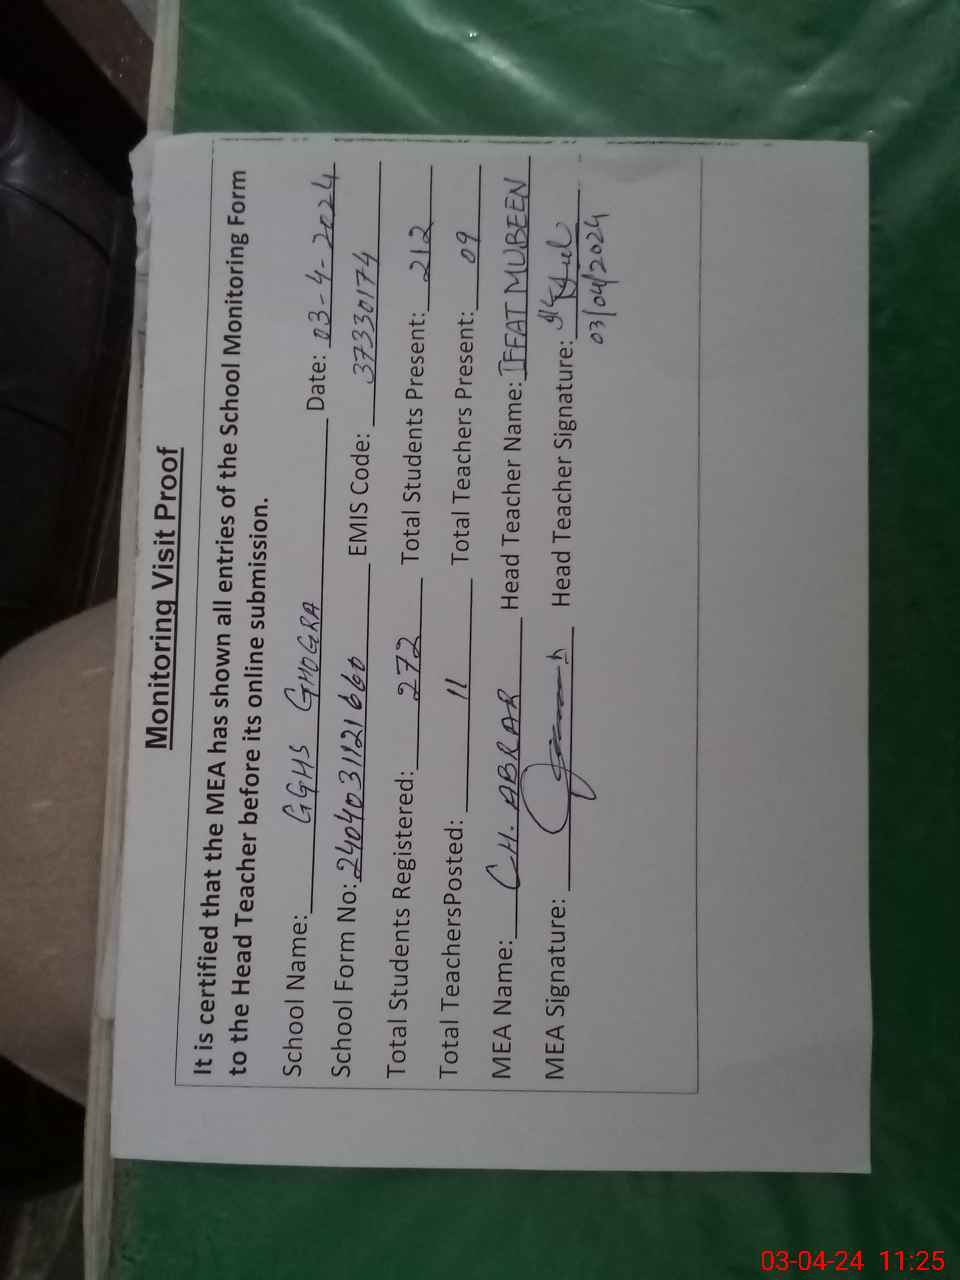 Monitoring Visit Proof
It is certified that the MEA has shown all entries of the School Monitoring Form
to the Head Teacher before its online submission.
School Name: GGHS GHOGRA Date: 03-4-2024
School Form No: 2404031121660 EMIS Code: 37330174
Total Students Registered: 272 Total Students Present: 212
Total TeachersPosted: 11 Total Teachers Present: 09
MEA Name: CH. ABRAR Head Teacher Name: IFFAT MUBEEN
MEA Signature: Head Teacher Signature:
03/04/2024
03-04-24 11:25